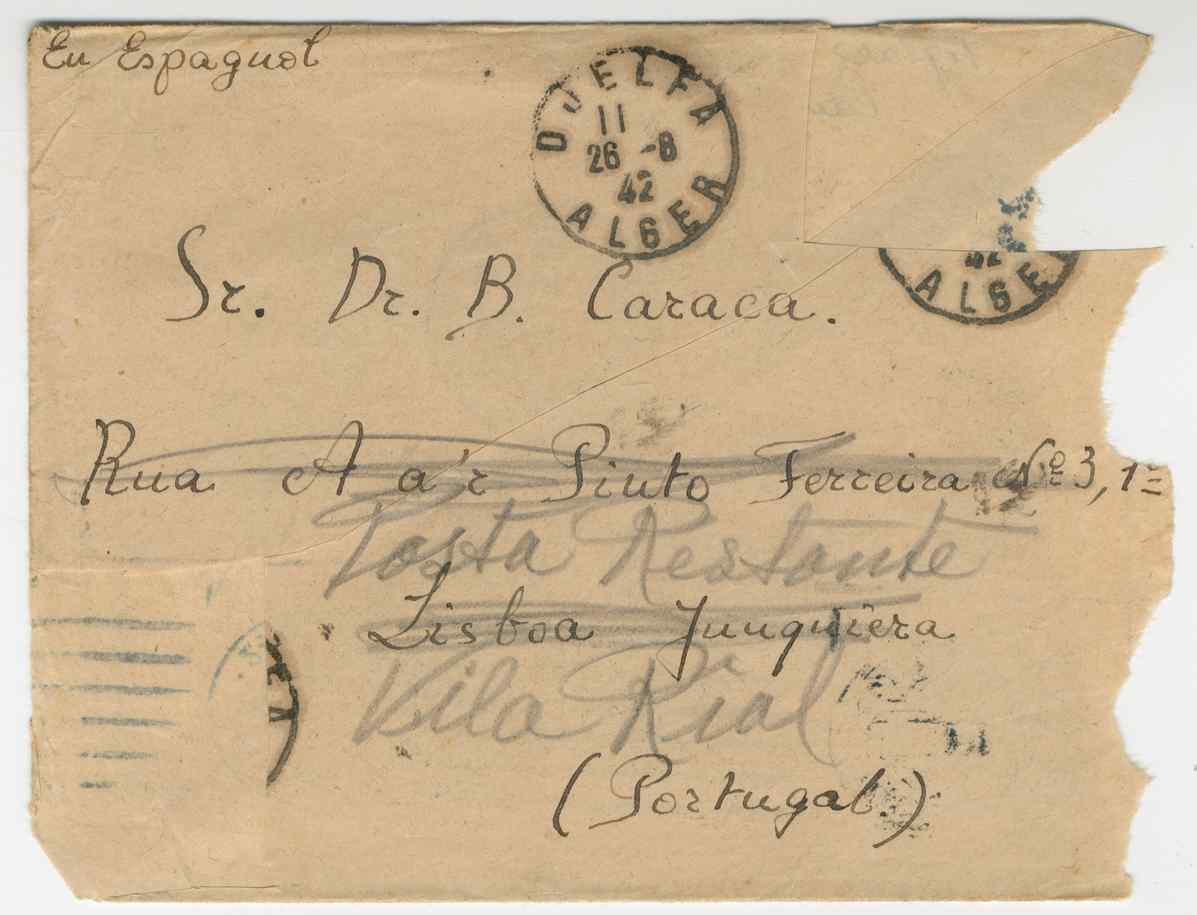 En Espagnol
DJELFA
11
26 -8
42
ALGER
42
ALGE
Sr. Dr. B. Caraca.
Rua A a'r Pinto Ferreira Nº 3, 1=
Posta Restante
Lisboa Junquiera
Vila Rial
(Portugal.)